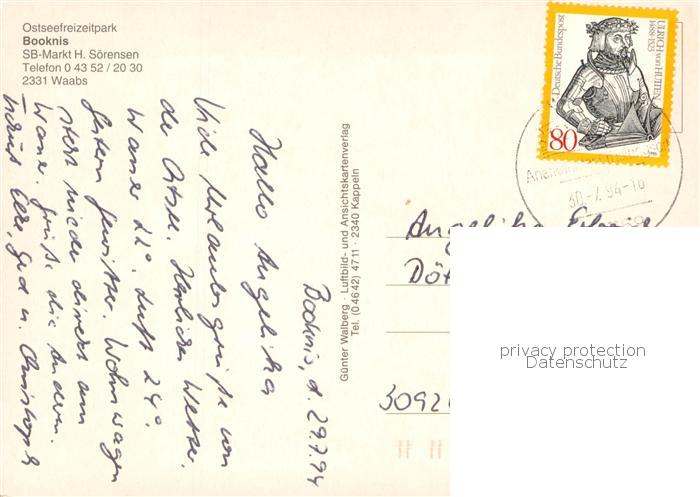 Ostseefreizeitpark
Booknis
SB-Markt H. Sörensen
Telefon 0 43 52 / 20 30
2331 Waabs
Booknis, d. 29.7.94
Hallo Angelika
Viele Urlaubsgrüße von
der Ostsee. Herrliches Wetter.
Wasser 22°. Luft 24°.
Gestern Gewitter. Wohnwagen
steht wieder direkt am
Wasser. Grüße die anderen.
Eere, Gerd u. Christoph
Günter Walberg · Luftbild- und Ansichtskartenverlag
Tel. (0 46 42) 47 11 · 2340 Kappeln
Deutsche Bundespost
ULRICH von HUTTEN
1488-1523
80
30.-7.94-16
Angelika
Döt
3092
privacy protection
Datenschutz